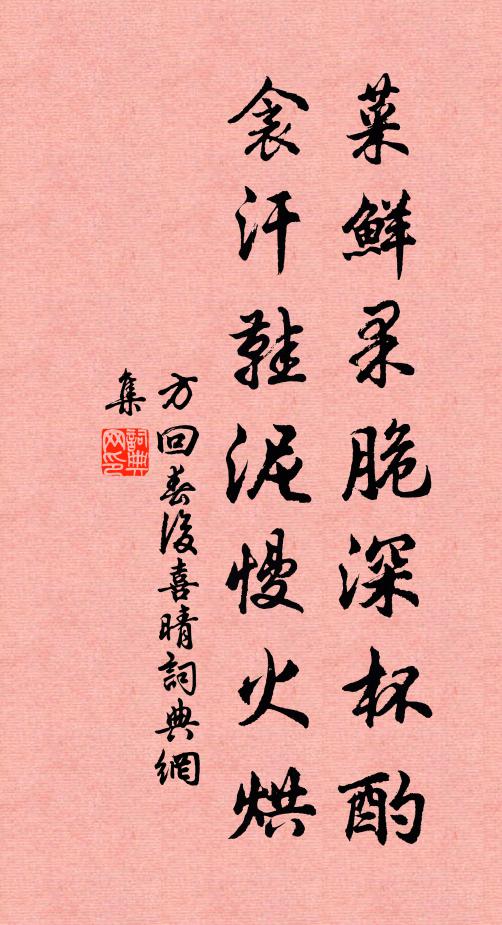 菜鮮果脆深杯酌
衾汗鞋泥慢火烘
方回春後喜晴詞典網
集
詞典
网印